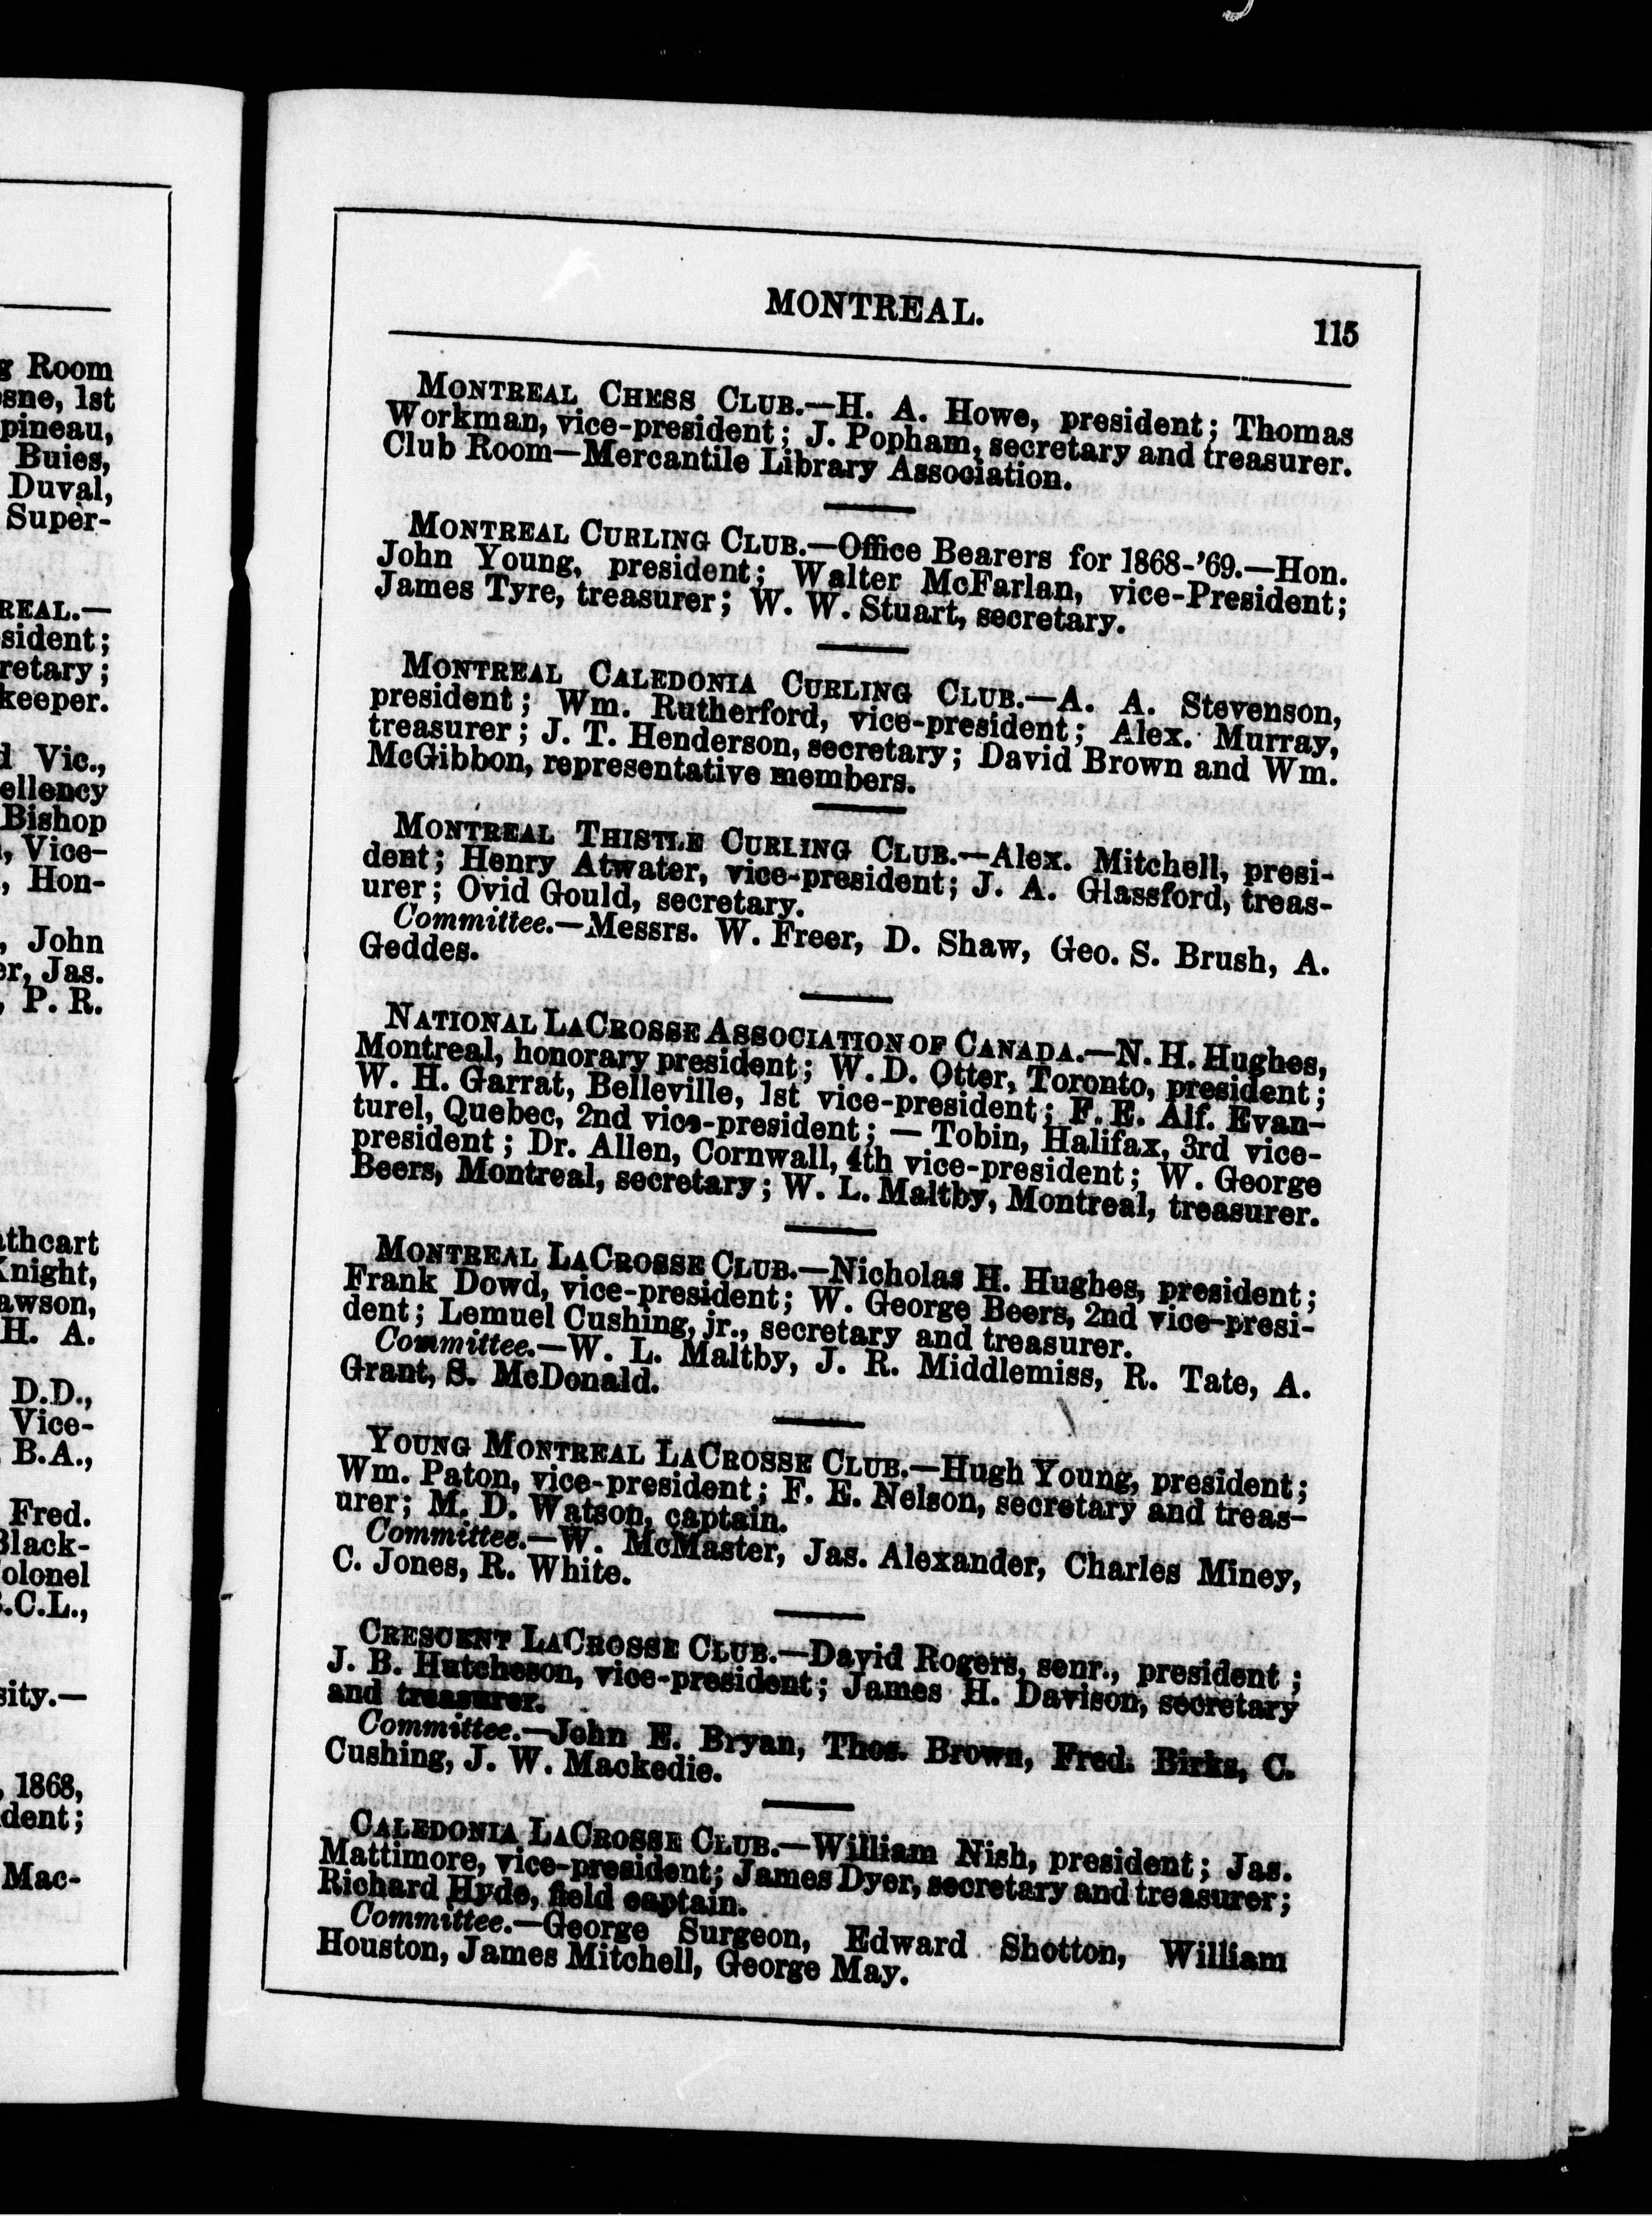 g Room
sne, 1st
pineau,
Buies,
Duval,
Super-
REAL.—
sident;
retary;
keeper.
d Vic.,
ellency
Bishop
, Vice-
, Hon-
, John
er, Jas.
, P. R.
athcart
Knight,
awson,
H. A.
D.D.,
Vice-
B.A.,
Fred.
Black-
olonel
.C.L.,
sity.—
, 1868,
dent;
Mac-
MONTREAL.
115
MONTREAL CHESS CLUB.—H. A. Howe, president; Thomas
Workman, vice-president; J. Popham, secretary and treasurer.
Club Room—Mercantile Library Association.
MONTREAL CURLING CLUB.—Office Bearers for 1868-'69.—Hon.
John Young, president; Walter McFarlan, vice-President;
James Tyre, treasurer; W. W. Stuart, secretary.
MONTREAL CALEDONIA CURLING CLUB.—A. A. Stevenson,
president; Wm. Rutherford, vice-president; Alex. Murray,
treasurer; J. T. Henderson, secretary; David Brown and Wm.
McGibbon, representative members.
MONTREAL THISTLE CURLING CLUB.—Alex. Mitchell, presi-
dent; Henry Atwater, vice-president; J. A. Glassford, treas-
urer; Ovid Gould, secretary.
Committee.—Messrs. W. Freer, D. Shaw, Geo. S. Brush, A.
Geddes.
NATIONAL LACROSSE ASSOCIATION OF CANADA.—N. H. Hughes,
Montreal, honorary president; W. D. Otter, Toronto, president;
W. H. Garrat, Belleville, 1st vice-president; F. E. Alf. Evan-
turel, Quebec, 2nd vice-president; — Tobin, Halifax, 3rd vice-
president; Dr. Allen, Cornwall, 4th vice-president; W. George
Beers, Montreal, secretary; W. L. Maltby, Montreal, treasurer.
MONTREAL LACROSSE CLUB.—Nicholas H. Hughes, president;
Frank Dowd, vice-president; W. George Beers, 2nd vice-presi-
dent; Lemuel Cushing, jr., secretary and treasurer.
Committee.—W. L. Maltby, J. R. Middlemiss, R. Tate, A.
Grant, S. McDonald.
YOUNG MONTREAL LACROSSE CLUB.—Hugh Young, president;
Wm. Paton, vice-president; F. E. Nelson, secretary and treas-
urer; M. D. Watson, captain.
Committee.—W. McMaster, Jas. Alexander, Charles Miney,
C. Jones, R. White.
CRESCENT LACROSSE CLUB.—David Rogers, senr., president;
J. B. Hutcheson, vice-president; James H. Davison, secretary
and treasurer.
Committee.—John E. Bryan, Thos. Brown, Fred. Birks, C.
Cushing, J. W. Mackedie.
CALEDONIA LACROSSE CLUB.—William Nish, president; Jas.
Mattimore, vice-president; James Dyer, secretary and treasurer;
Richard Hyde, field captain.
Committee.—George Surgeon, Edward Shotton, William
Houston, James Mitchell, George May.